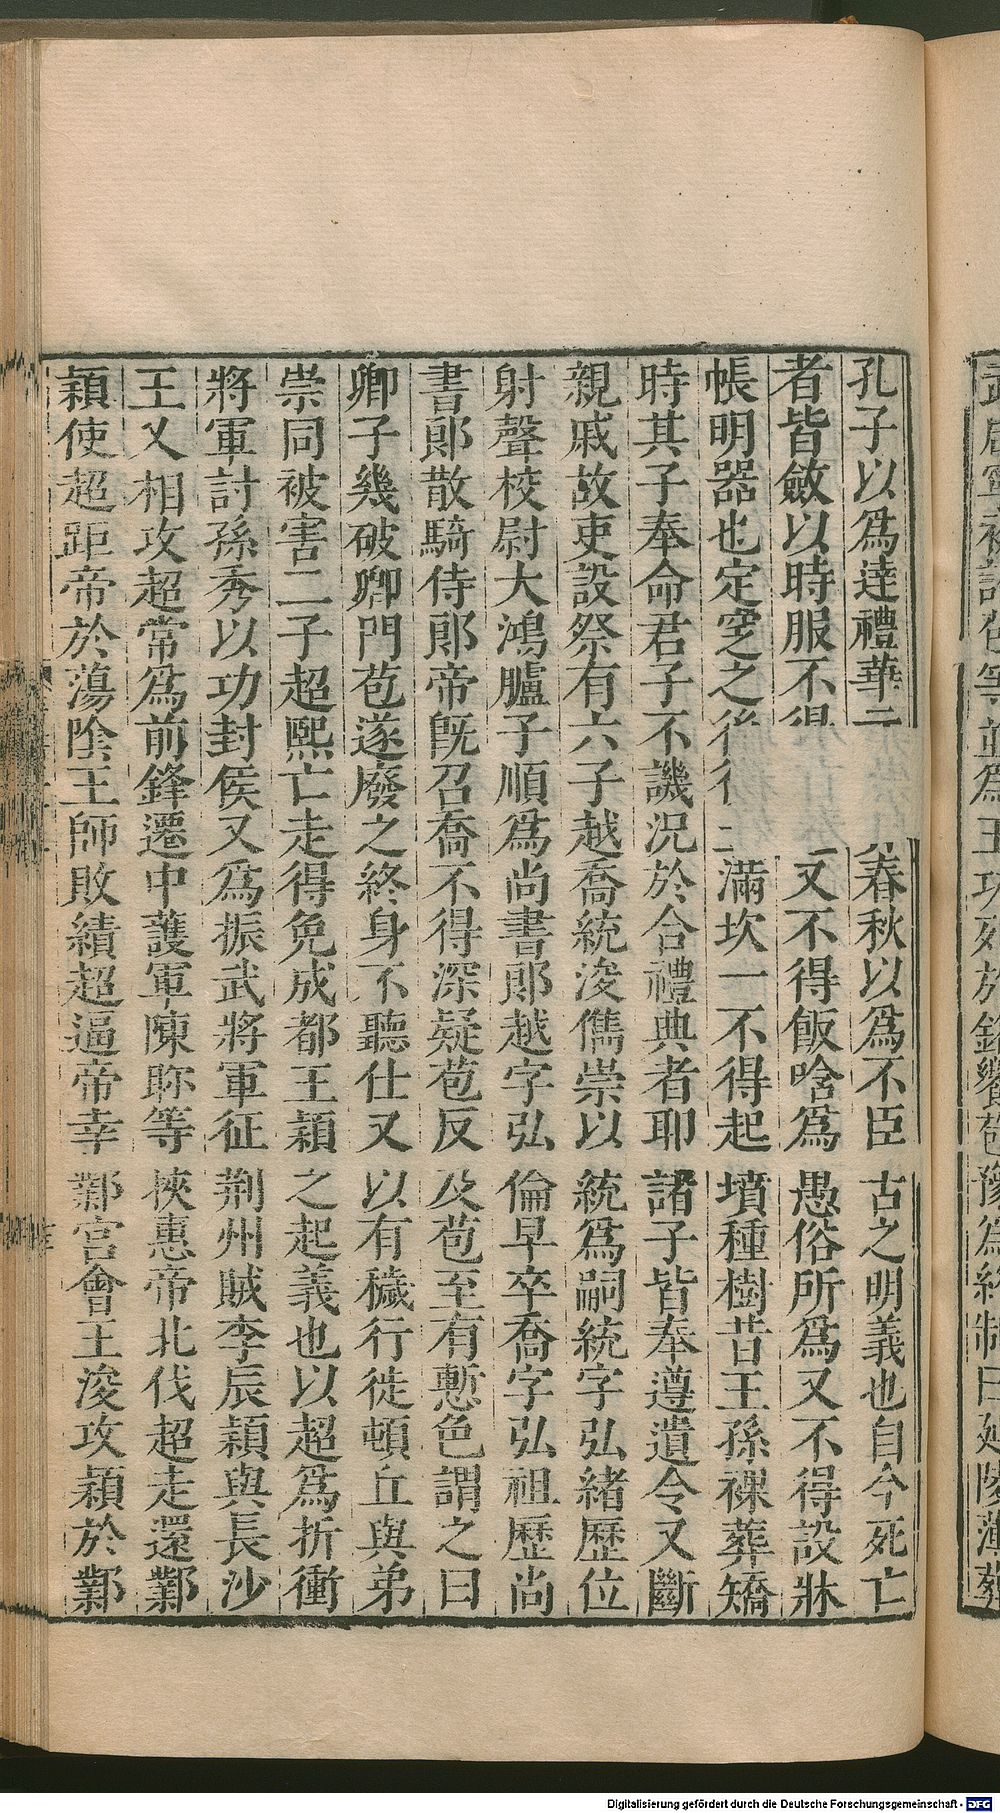 孔子以爲達禮華元 春秋以爲不臣古之明義也自今死亡
者皆斂以時服不得 又不得飯唅爲愚俗所爲又不得設牀
帳明器也定窆之後 滿坎一不得起墳種樹昔王孫裸葬矯
時其子奉命君子不譏況於合禮典者耶諸子皆奉遵遺令又斷
親戚故吏設祭有六子越喬統浚儁崇以統爲嗣統字弘緒歷位
射聲校尉大鴻臚子順爲尚書郎越字弘倫早卒喬字弘祖歷尚
書郎散騎侍郎帝既召喬不得深疑苞反及苞至有慙色謂之曰
卿子幾破卿門苞遂廢之終身不聽仕又以有穢行徙頓丘與弟
崇同被害二子超熙亡走得免成都王穎之起義也以超爲折衝
將軍討孫秀以功封侯又爲振武將軍征荆州賊李辰穎與長沙
王乂相攻超常爲前鋒遷中護軍陳眕等挾惠帝北伐超走還鄴
穎使超距帝於蕩陰王師敗績超逼帝幸鄴宮會王浚攻穎於鄴
爲王功死於
豫爲終制曰延陵薄葬
Digitalisierung gefördert durch die Deutsche Forschungsgemeinschaft - DFG